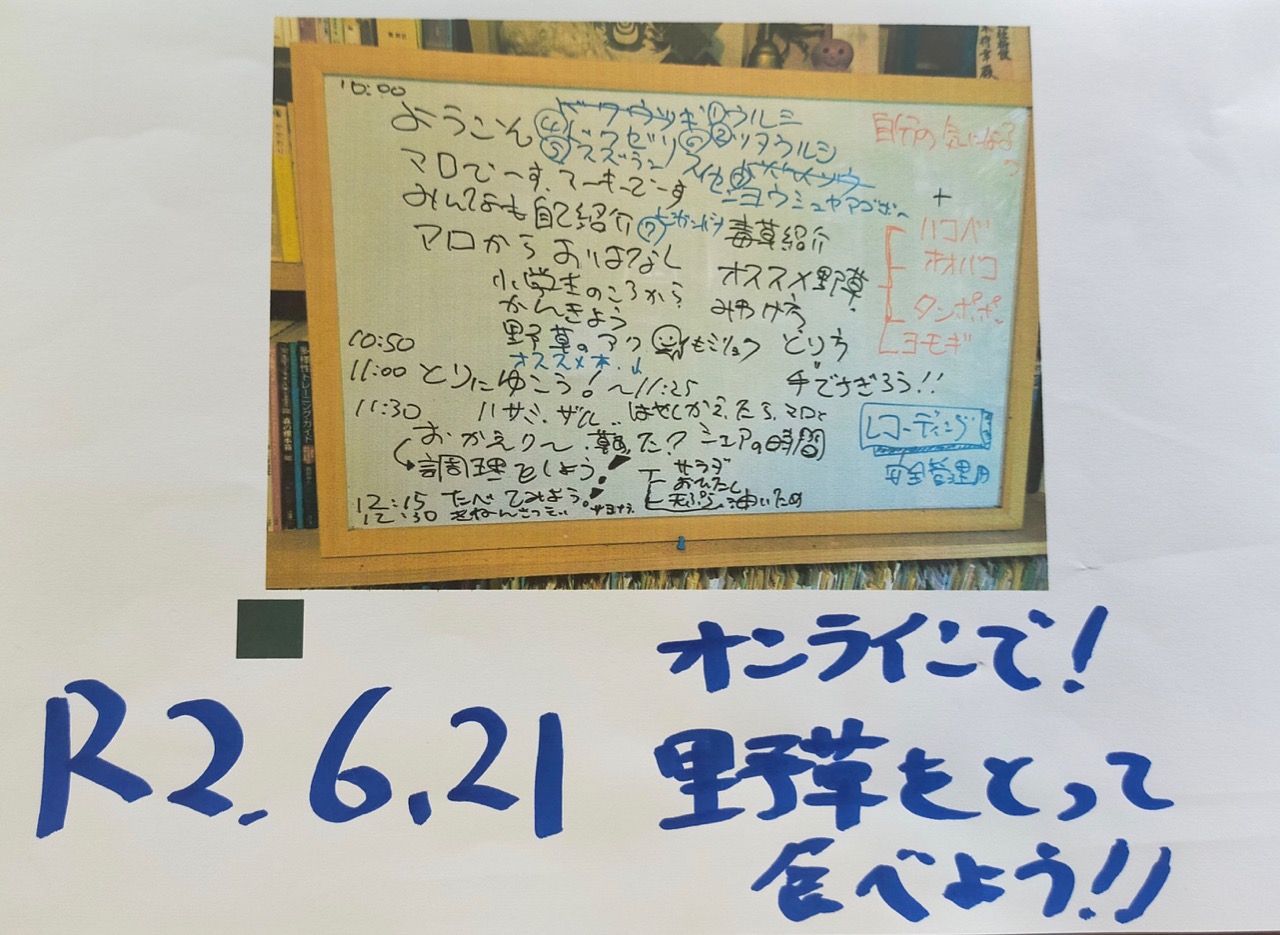 10:00
ようこそ
④ドクゼリ
⑤スズラン
①ウルシ
②ツタウルシ
ヨウシュヤマゴボー
マロでーす、てーきでーす
みんなも自己紹介
⑦
毒草紹介
マロからおはなし
小学生のころから
かんきょう
野草のアク
オススメ本↓
オススメ野草
みわけ方
とり方
手でちぎろう!!
自分の気になる
+
ハコベ
オオバコ
タンポポ
ヨモギ
10:50
11:00 とりにゆこう!〜11:25
ハサミ、ザル
11:30
おかえり〜
た?シェアの時間
調理をしよう!
サラダ
おひたし
天ぷら 油いため
12:15 たべてみよう!
12:30 きねんさつえい サヨナラ
レコーディング
安全管理用
多様性トレーニング・ガイド
R2.6.21
オンラインで!
野草をとって
食べよう!!